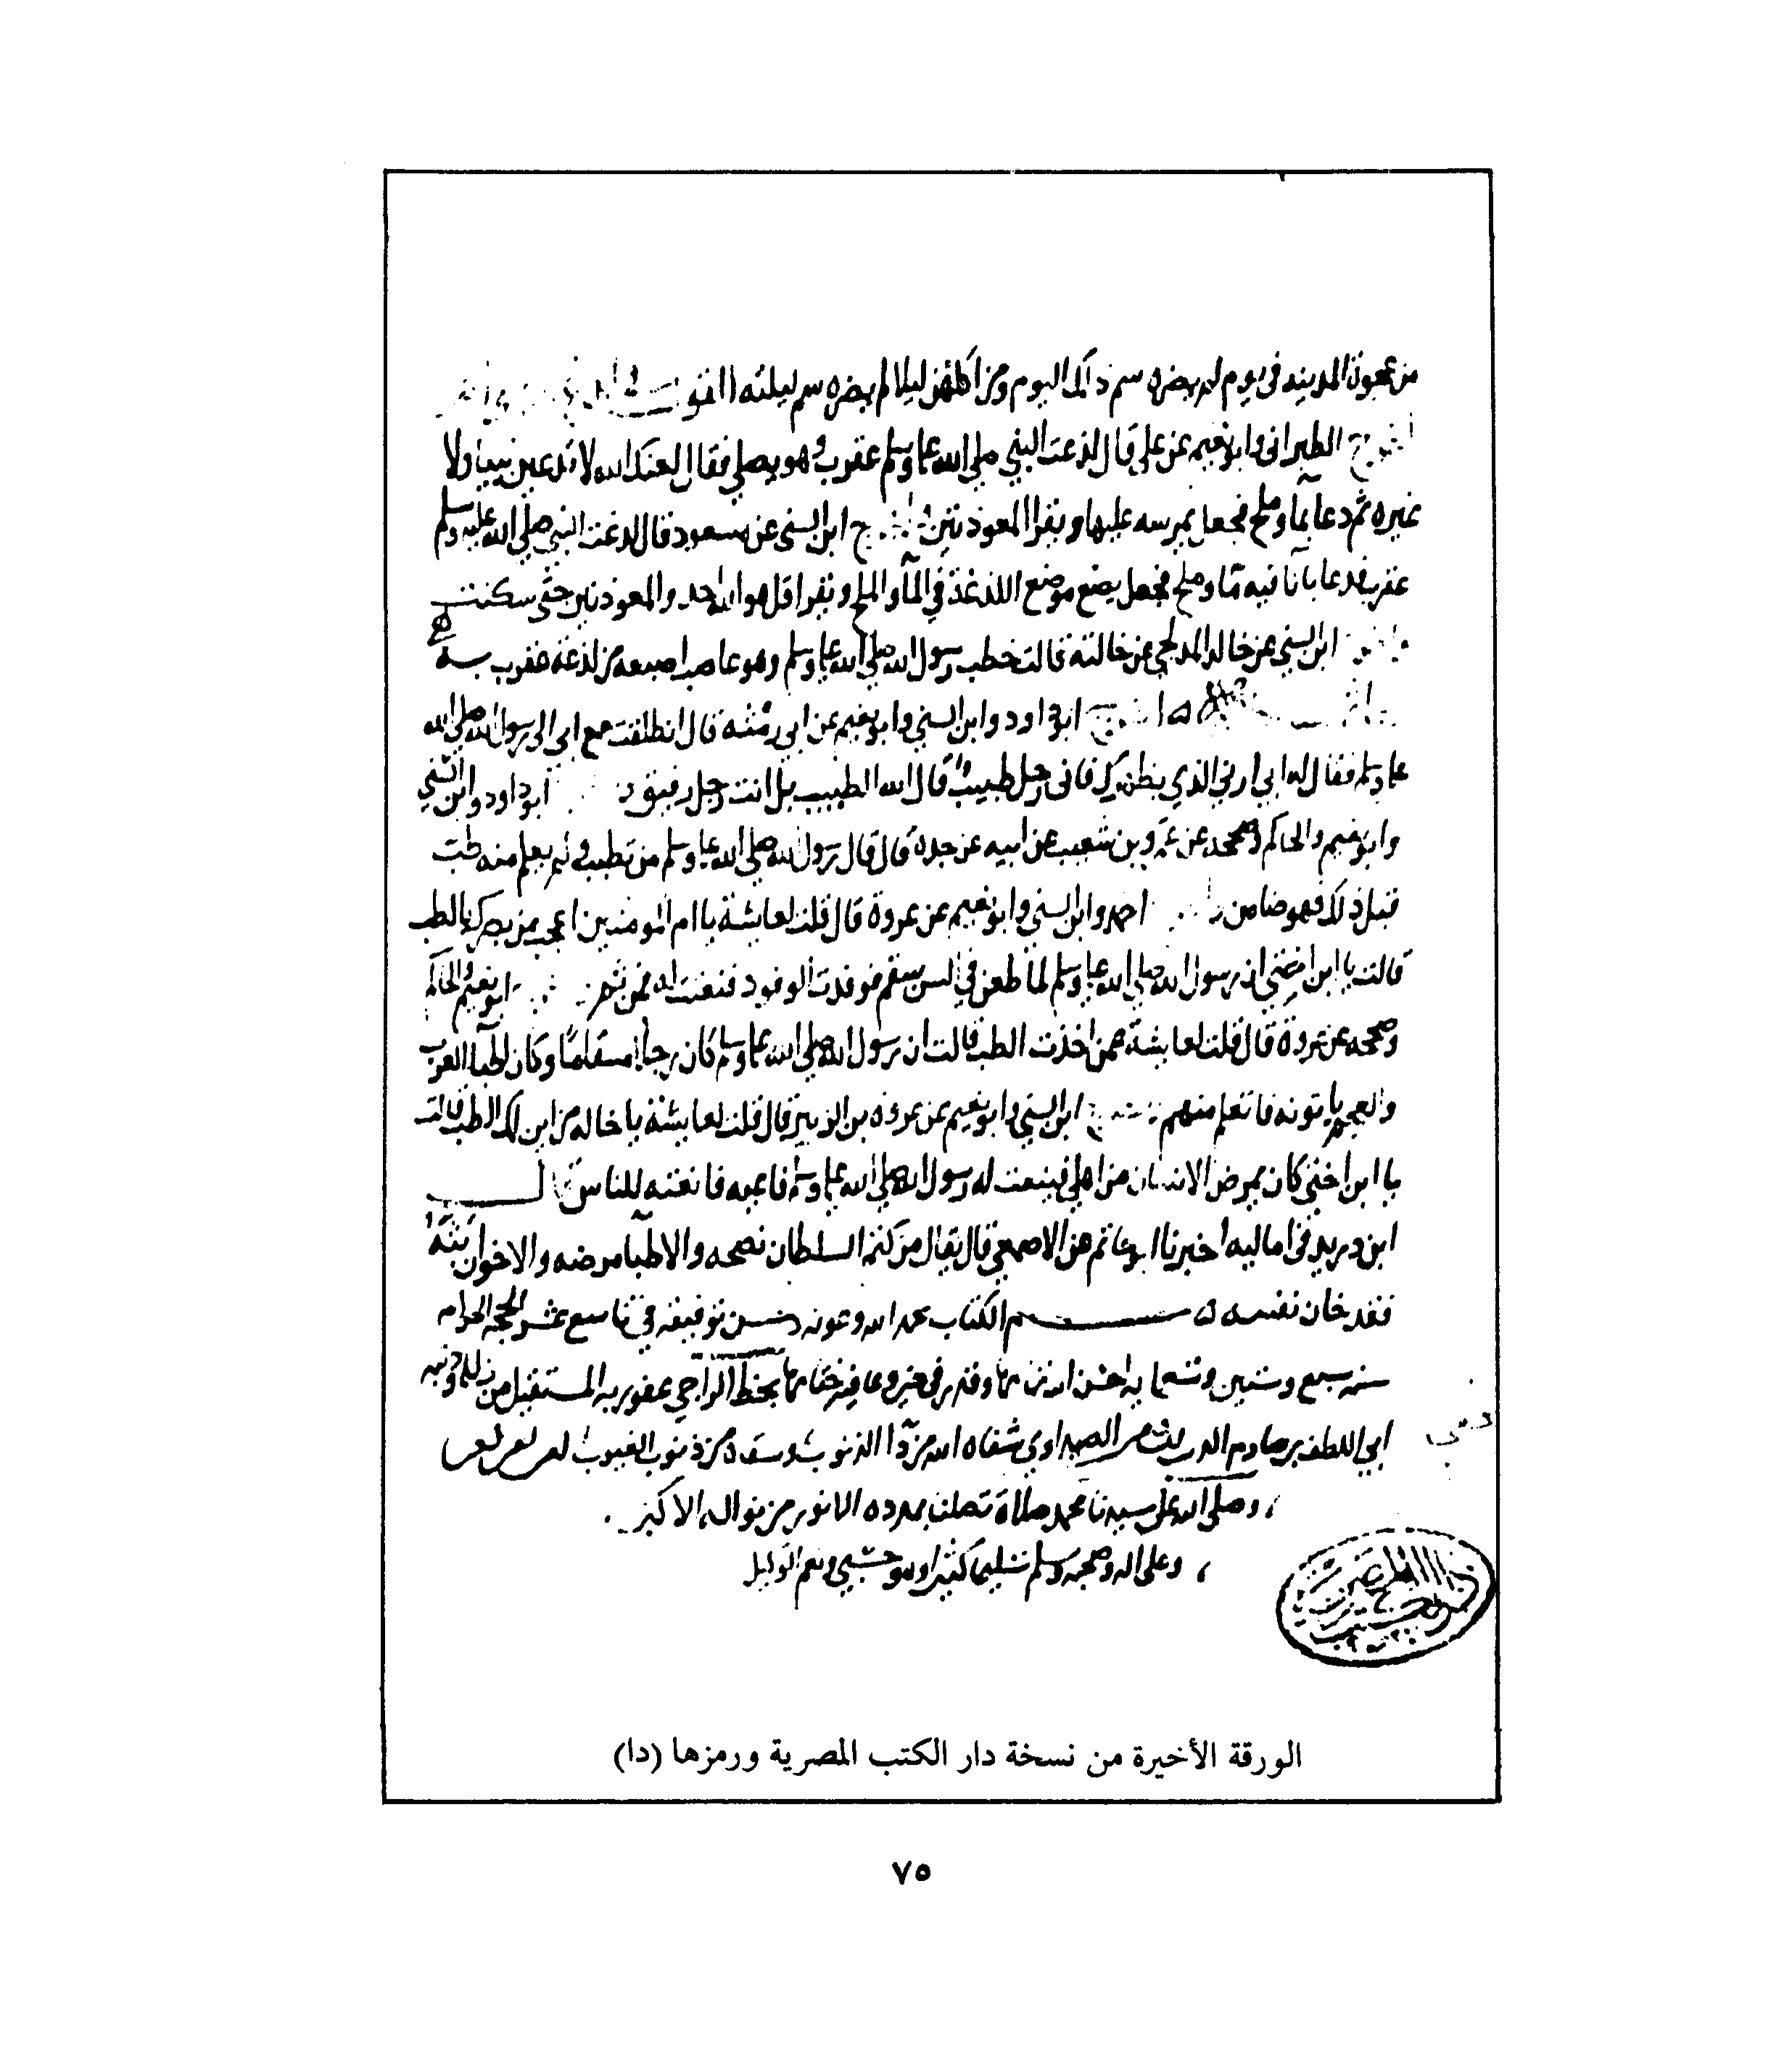 من عجوة المدينه في يوم لم يضره سم ذلك اليوم ومن اكلهن ليلا لم يضره سم ليلته
الطبراني وابو نعيم عن علي قال لذعت النبي صلى الله عليه وسلم عقرب وهو يصلي فقال لعنك الله لا تدعين نبيا ولا
غيره ثم دعا بماء وملح فجعل يمرسه عليها ويقرا المعوذتين ابن السني عن مسعود قال لدغت النبي صلى الله عليه وسلم
عقرب فدعا بانا فيه ماء وملح فجعل يضع موضع اللذغة في الماء والملح ويقرا قل هو الله احد والمعوذتين حتى سكنت
ابن السني عن خالد المدلجي عن خالته قالت خطب رسول الله صلى الله عليه وسلم وهو عاصب اصبعه من لذغة عقرب
ابو داود وابن السني وابو نعيم عن ابي رمثه قال انطلقت مع ابي الى رسول الله صلى الله
عليه وسلم فقال له ابي ارني الذي بظهرك فاني رجل طبيب قال الله الطبيب بل انت رجل رفيق ابو داود وابن السني
وابو نعيم والحاكم وصححه عن عمرو بن شعيب عن ابيه عن جده قال قال رسول الله صلى الله عليه وسلم من تطبب ولم يعلم منه طب
قبل ذلك فهو ضامن احمد وابن السني وابو نعيم عن عروة قال قلت لعايشة يا ام المومنين اعجب من بصرك بالطب
قالت يا ابن اختي ان رسول الله صلى الله عليه وسلم لما طعن في السن سقم فوفدت الوفود فنعتت له فمن ثم ابو نعيم والحاكم
وصححه عن عروة قال قلت لعايشة ممن اخذت الطب قالت ان رسول الله صلى الله عليه وسلم كان رجلا مسقاما وكان اطبا العرب
والعجم ياتونه فاتعلم منهم ابن السني وابو نعيم عن عروه بن الزبير قال قلت لعايشة يا خاله من اين لك الطب قالت
يا ابن اختي كان يمرض الانسان من اهلي فينعت له رسول الله صلى الله عليه وسلم فاعيه فانعته للناس قال
ابن دريد في اماليه اخبرنا ابو حاتم عن الاصمعي قال يقال من كتم السلطان نصحه والاطبا مرضه والاخوان بثه
فقد خان نفسه تم الكتاب بحمد الله وعونه وحسن توفيقه في تاسع عشر الحجه الحرام
سنه سبع وستين وتسعمايه احسن الله ختامها بخط الراجي عفو ربه المستقيل من ذنبه
ابي اللطف الصيداوي شفاه الله من داء الذنوب
وصلى الله على سيدنا محمد صلاة تصلنا بمدده الانور من نواله الاكبر
وعلى اله وصحبه وسلم تسليما كثيرا وهو حسبي ونعم الوكيل
الورقة الأخيرة من نسخة دار الكتب المصرية ورمزها (دا)
٧٥